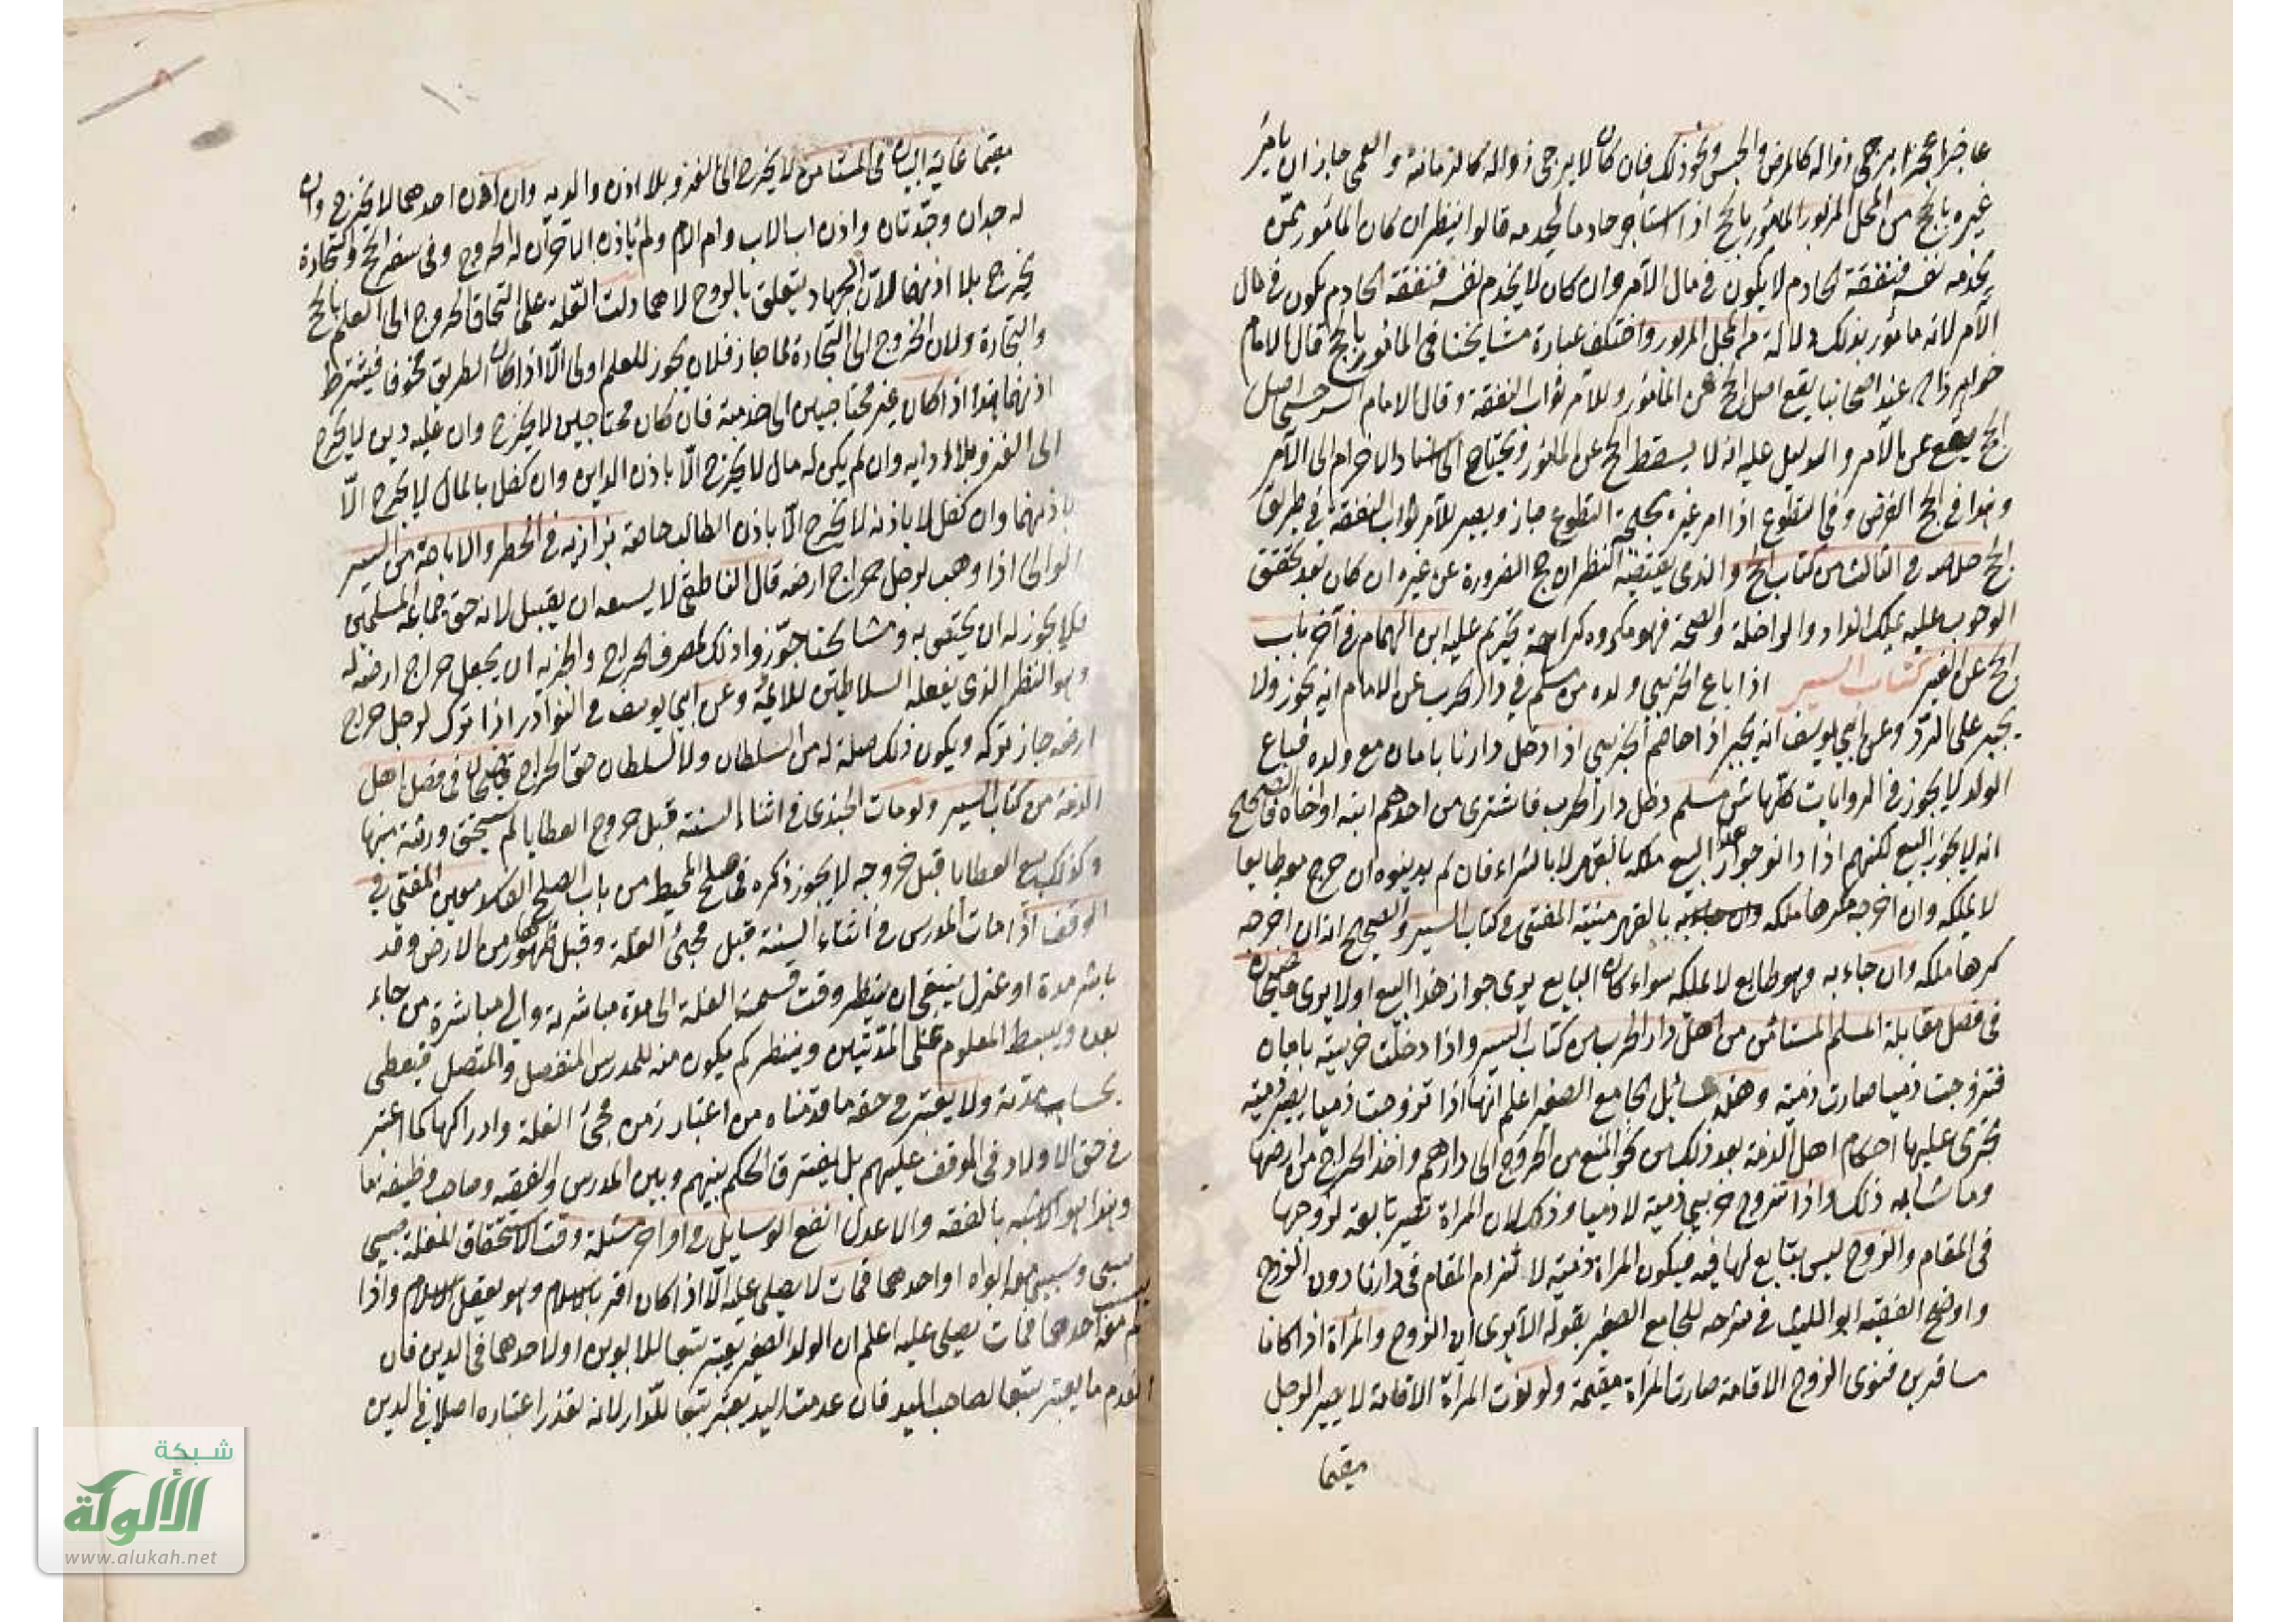 عاجزا عجزا يرجى زواله كالمرض والحبس ونحو ذلك فان كان لا يرجى زواله كالزمانة والعمى جاز ان يامر
غيره بالحج من المحل المزبور المامور بالحج اذا استأجر خادما يخدمه قالوا ينظر ان كان المأمور ممن
يخدمه نفسه فنفقة الخادم لا يكون في مال الآمر وان كان لا يخدم نفسه فنفقة الخادم يكون في مال
الآمر لانه مأمور بذلك دلالة من المحل المزبور واختلف عبارة مشايخنا في المأمور بالحج قال الامام
خواهر زاده عند اصحابنا يقع اصل الحج عن المأمور وللآمر ثواب النفقة وقال الامام السرخسي اصل
الحج يقع عن الآمر والدليل عليه انه لا يسقط الحج عن المأمور ويحتاج الى اسناد الاحرام الى الآمر
وهذا في الحج الفرض وفي التطوع اذا امر غيره بحجة التطوع جاز ويصير للآمر ثواب النفقة في طريق
الحج خلاصه في الثالث من كتاب الحج والذي يقتضيه النظر ان حج الضرورة عن غيره ان كان بعد تحقق
الوجوب عليه بملك الزاد والراحلة والصحة فهو مكروه كراهة تحريم عليه ابن الهمام في آخر باب
الحج عن الغير كتاب السير اذا باع الحربي ولده من مسلم في دار الحرب عن الامام انه يجوز ولا
يجبر على الرد وعن ابي يوسف انه يجبر اذا خاصم الحربي اذا دخل دارنا بامان مع ولده فباع
الولد لا يجوز في الروايات كلها مسلم دخل دار الحرب فاشترى من احدهم ابنه او اخاه فالصحيح
انه لا يجوز البيع لكنهم اذا دانوا جواز هذا البيع ملكه بالقهر لا بالشراء فان لم يدينوه ان خرج معه طايعا
لا يملكه وان اخرجه مكرها ملكه بالقهر منية المفتي في كتاب السير والصحيح انه ان اخرجه
كرها ملكه وان جاء به وهو طايع لا يملكه سواء كان البايع يرى جواز هذا البيع اولا يرى
في فصل مقابلة المسلم المستأمن من اهل دار الحرب من كتاب السير واذا دخلت حربية بامان
فتزوجت ذميا صارت ذمية وهذه مسائل الجامع الصغير اعلم انها اذا تزوجت ذميا يصير ذمية
تجرى عليها احكام اهل الذمة بعد ذلك من نحو المنع من الخروج الى دارهم واخذ الخراج من ارضها
وما شابه ذلك واذا تزوج حربي ذمية لا ذميا وذلك لان المراة تصير تابعة لزوجها
في المقام والزوج ليس بتابع لها فيه فيكون المراة ذمية لالتزام المقام في دارنا دون الزوج
واوضح الفقيه ابو الليث في شرحه للجامع الصغير بقوله الا يرى ان الزوج والمرأة اذا كانا
مسافرين فنوى الزوج الاقامة صارت المرأة مقيمة ولو نوت المرأة الاقامة لا يصير الرجل
مقيما
مقيما غاية البيان في المستأمن لا يخرج الى الغزو بلا اذن والديه وان اذن احدهما لا يخرج وان
له جدان وجدتان واذن اب الاب وام الام ولم يأذن الآخران له الخروج وفي سفر الحج والتجارة
يخرج بلا اذنهما لان الجهاد يتعلق بالروح لا هما دلت العلة على التحاق الخروج الى العلم بالحج
والتجارة ولان الخروج الى التجارة لما جاز فلان يجوز للعلم اولى الا اذا كان الطريق مخوفا فيشترط
اذنهما هذا اذا كان غير محتاجين الى خدمته فان كان محتاجين لا يخرج وان عليه دين لا يخرج
الى الغزو بلا ادايه وان لم يكن له مال لا يخرج الا باذن الداين وان كفل بالمال لا يخرج الا
باذنهما وان كفل لا باذنه لا يخرج الا باذن الطالب خاصة بزازيه في الحظر والاباحة من السير
الوالى اذا وهب لرجل خراج ارضه قال الناطفي لا يسعه ان يقبل لانه حق جماعة المسلمين
فلا يجوز له ان يختص به ومشايخنا جوزوا ذلك لمصرف الخراج والجزية ان يجعل خراج ارضه له
وهو النظر الذي يفعله السلاطين للائمة وعن ابي يوسف في النوادر اذا ترك لرجل خراج
ارضه جاز تركه ويكون ذلك صلة له من السلطان ولا للسلطان حق الخراج قاضيخان في فصل اهل
الذمة من كتاب السير ولو مات الجندي في اثناء السنة قبل خروج العطايا لم يستحق ورثته منها
وكذلك بيع العطايا قبل خروجه لا يجوز ذكره في صلح المحيط من باب الصلح معين المفتي في
الوقف اذا مات المدرس في اثناء السنة قبل مجئ الغلة وقبل ظهورها من الارض وقد
باشر مدة او عزل ينبغي ان ينظر وقت قسمة الغلة الى مدة مباشرته والى مباشرة من جاء
بعده ويبسط المعلوم على المدتين وينظر كم يكون منه للمدرس المنفصل والمتصل فيعطى
بحساب مدته ولا يعتبر في حقه ما قدمناه من اعتبار زمن مجئ الغلة وادراكها كما اعتبر
في حق الاولاد في الوقف عليهم بل يفترق الحكم بينهم وبين المدرس والفقيه وصاحب وظيفة ما
وهذا هو الاشبه بالفقه والاعدل انفع الوسايل في اواخر مسئلة وقت الاستحقاق للغلة صبي
سبي وسبي معه ابواه او احدهما فمات لا يصلى عليه الا اذا كان اقر بالاسلام وهو يعقل الاسلام واذا
لم يسب معه احدهما فمات يصلى عليه اعلم ان الولد الصغير يعتبر تبعا للابوين او لاحدهما في الدين فان
انعدم ما يعتبر تبعا لصاحب اليد فان عدمت اليد يعتبر تبعا للدار لانه تعذر اعتباره اصلا في الدين
شبكة
الألوكة
www.alukah.net